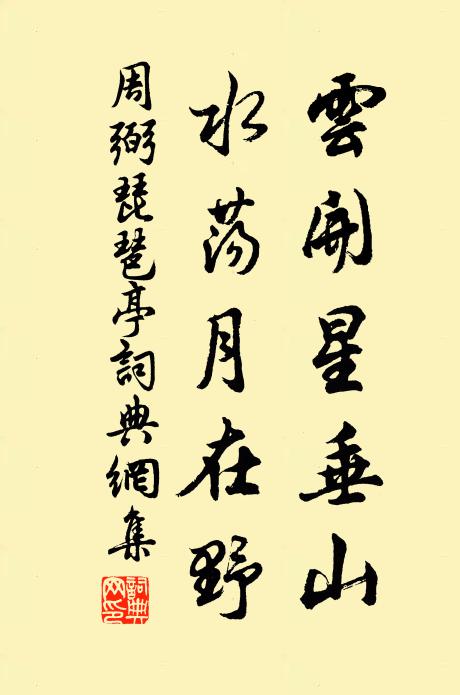 雲開星垂山
水蕩月在野
周弼琵琶亭詞典網集
詞典網印